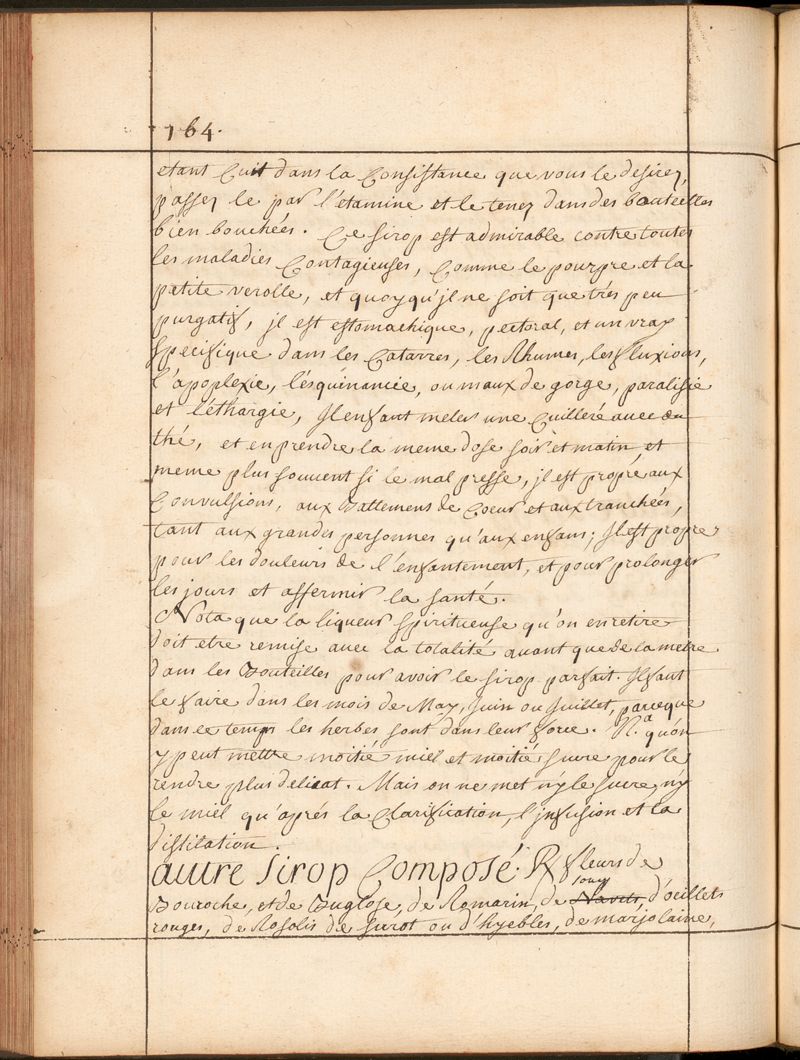 164.
etant Cuit dans la Consistance que vous le desirez,
passez le par l'etamine et le tenez dans des bouteilles
bien bouchées. Ce sirop est admirable contre toutes
les maladies Contagieuses, Comme le pourpre et la
petite verolle, et quoyqu'jl ne soit que trés peu
purgatif, jl est estomachique, pectoral, et un vray
specifique dans les Catarres, les Rhumes, les fluxions,
l'apoplexie, l'ésquinancie, ou maux de gorge, paralisie
et léthargie, Jl en faut meler une Cuilleré avec du
thé, et en prendre la meme dose soir et matin, et
meme plus souvent si le mal presse, jl est propre aux
Convulsions, aux Battemens de Coeur et aux tranchées,
tant aux grandes personnes qu'aux enfans; Jl est propre
pour les douleurs de l'enfantement, et pour prolonger
les jours et affermir la santé.
Nota que la liqueur spiritueuse qu'on en retire
doit etre remise avec la totalité avant que de la metre
dans les Bouteilles pour avoir le sirop parfait. Jl faut
le faire dans les mois de May, Juin ou Juillet, parceque
dans ce temps les herbes sont dans leur force. N.a qu'on
y peut mettre moitié miel et moitié sucre pour le
rendre plus delicat. Mais on ne met n'y le sucre, n'y
le miel qu'aprés la Clarification, l'jnfusion et la
distilation.
autre Sirop Composé. ℞ fleurs de
Bouroche, et de Buglose, de Romarin, de Navets, d'oeillets
rouges, de Rosolis de surot ou d'hyebles, de marjolaine,